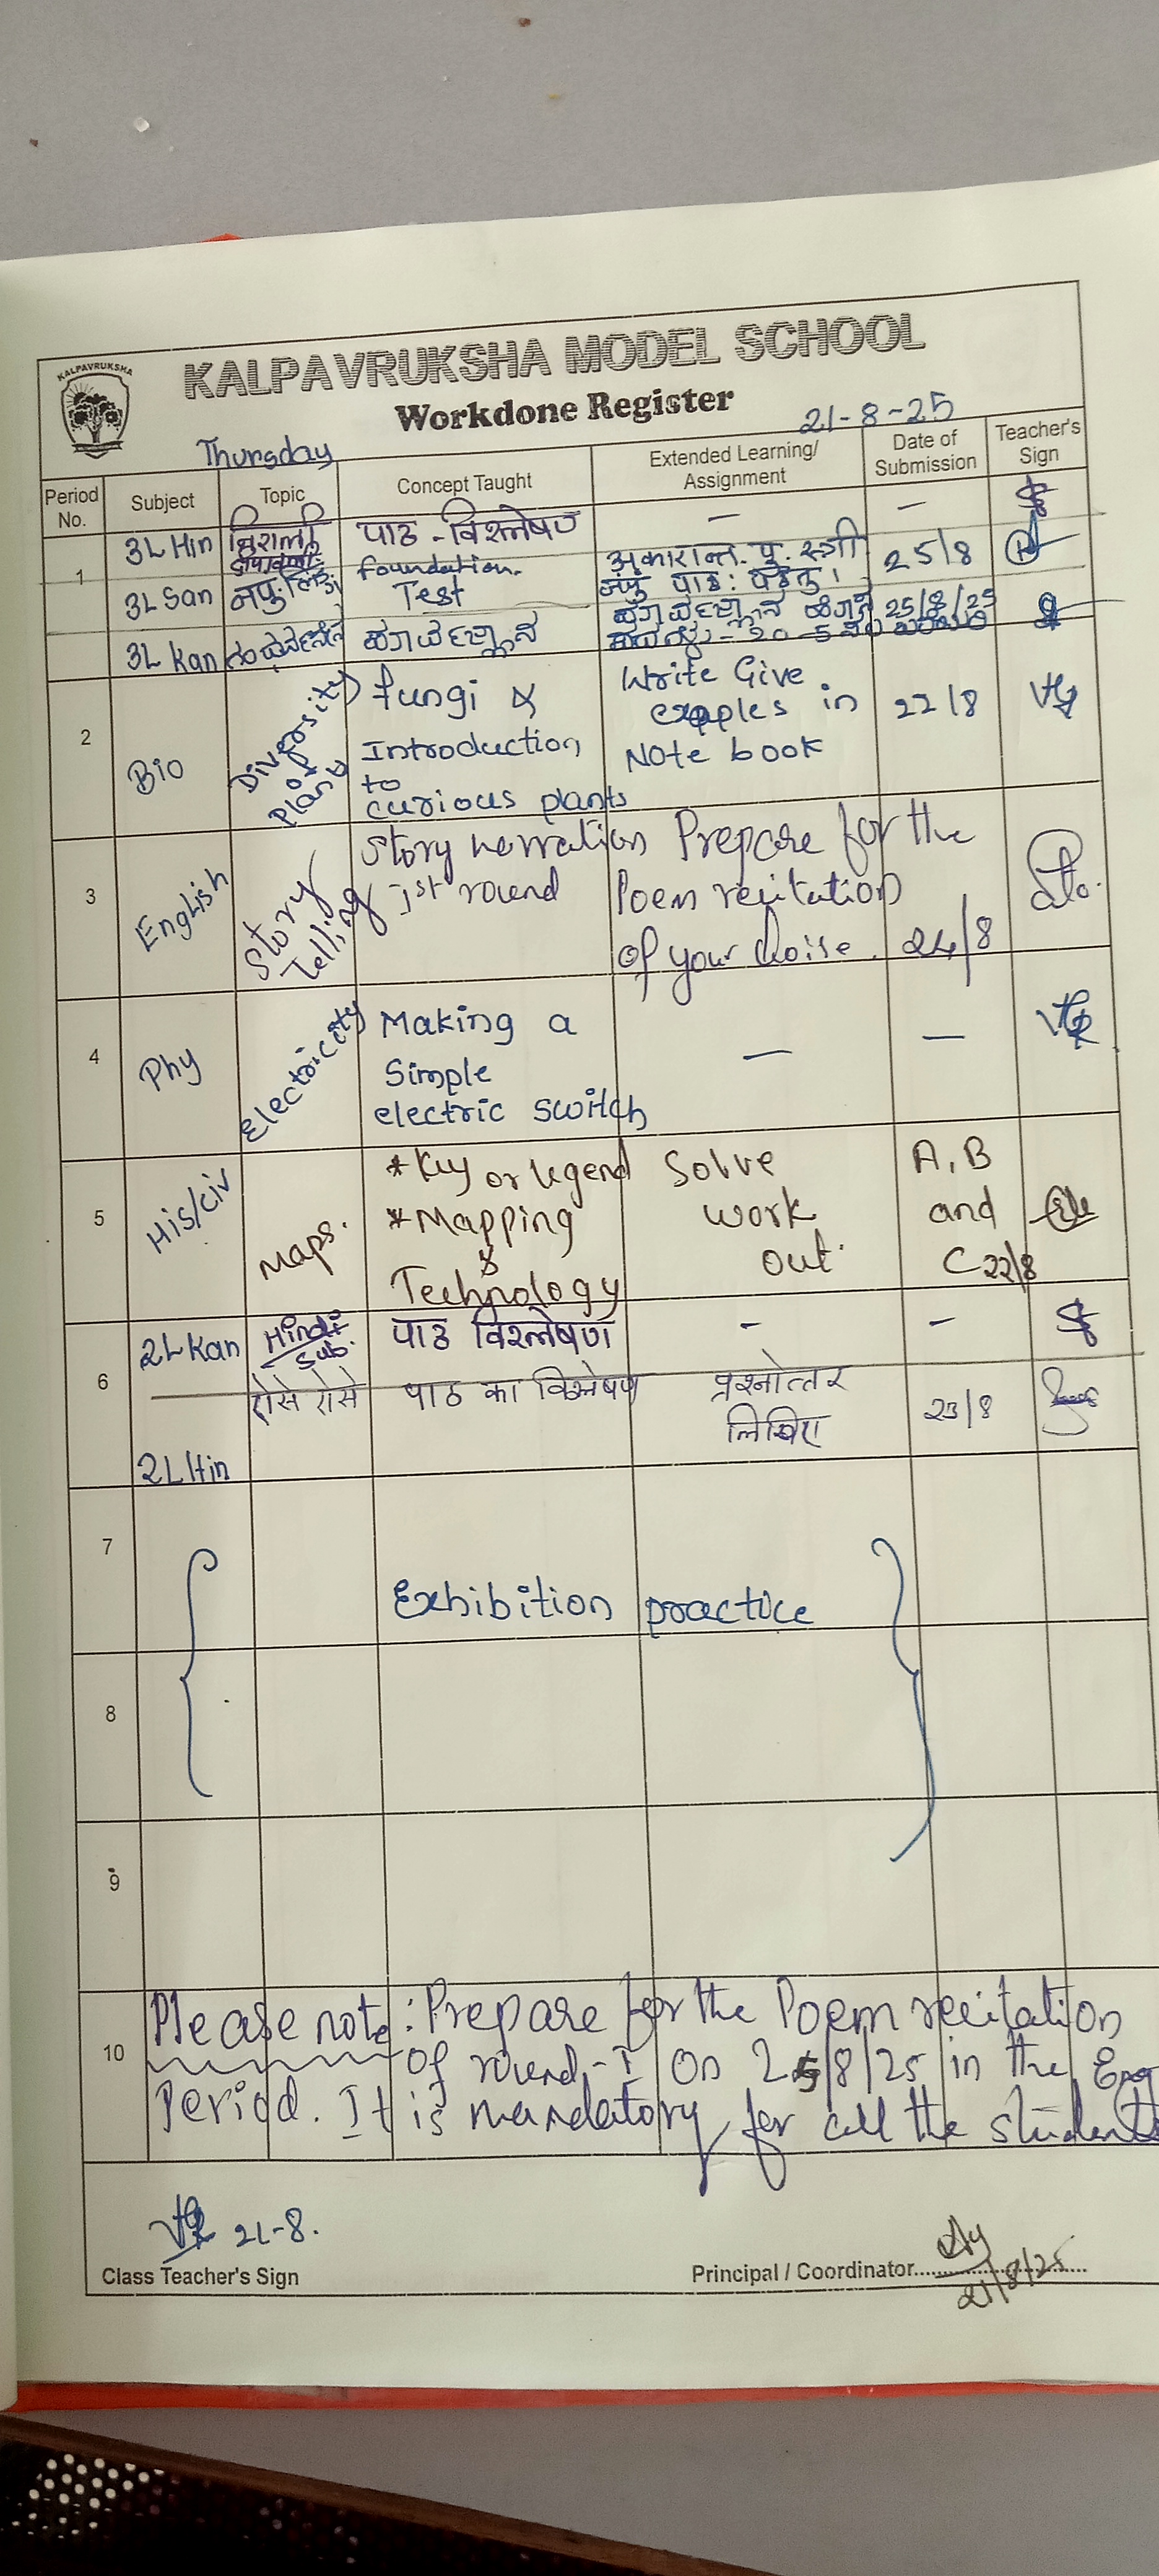 KALPAVRUKSHA
KALPAVRUKSHA MODEL SCHOOL
Workdone Register
Thursday
21-8-25
Period No.
Subject
Topic
Concept Taught
Extended Learning/
Assignment
Date of
Submission
Teacher's
Sign
1
3L Hin
पाठ - विश्लेषण
-
-
3L San
foundation.
Test
अकारान्त. पु. स्त्री
25/8
3L Kan
25/8/25
2
Bio
Diversity
of
Plants
fungi &
Introduction
to
curious plants
Write Give
exaples in
Note book
22/8
3
English
Story
Telling
Story narration
1st round
Prepare for the
Poem recitation
of your choise.
24/8
4
Phy
Electricity
Making a
Simple
electric switch
-
-
5
His/civ
Maps.
*Key or legend
*Mapping
&
Technology
Solve
work
out.
A, B
and
C 22/8
6
2L Kan
Hindi
Sub.
पाठ विश्लेषण
-
-
ऐसे ऐसे
पाठ का विश्लेषण
प्रश्नोत्तर
लिखिए
23/8
2L Hin
7
Exhibition practice
8
9
10
Please note: Prepare for the Poem recitation
of round-I on 25/8/25 in the Eng
Period. It is mandatory for all the students
21-8.
Class Teacher's Sign
Principal / Coordinator..............................
21/8/25